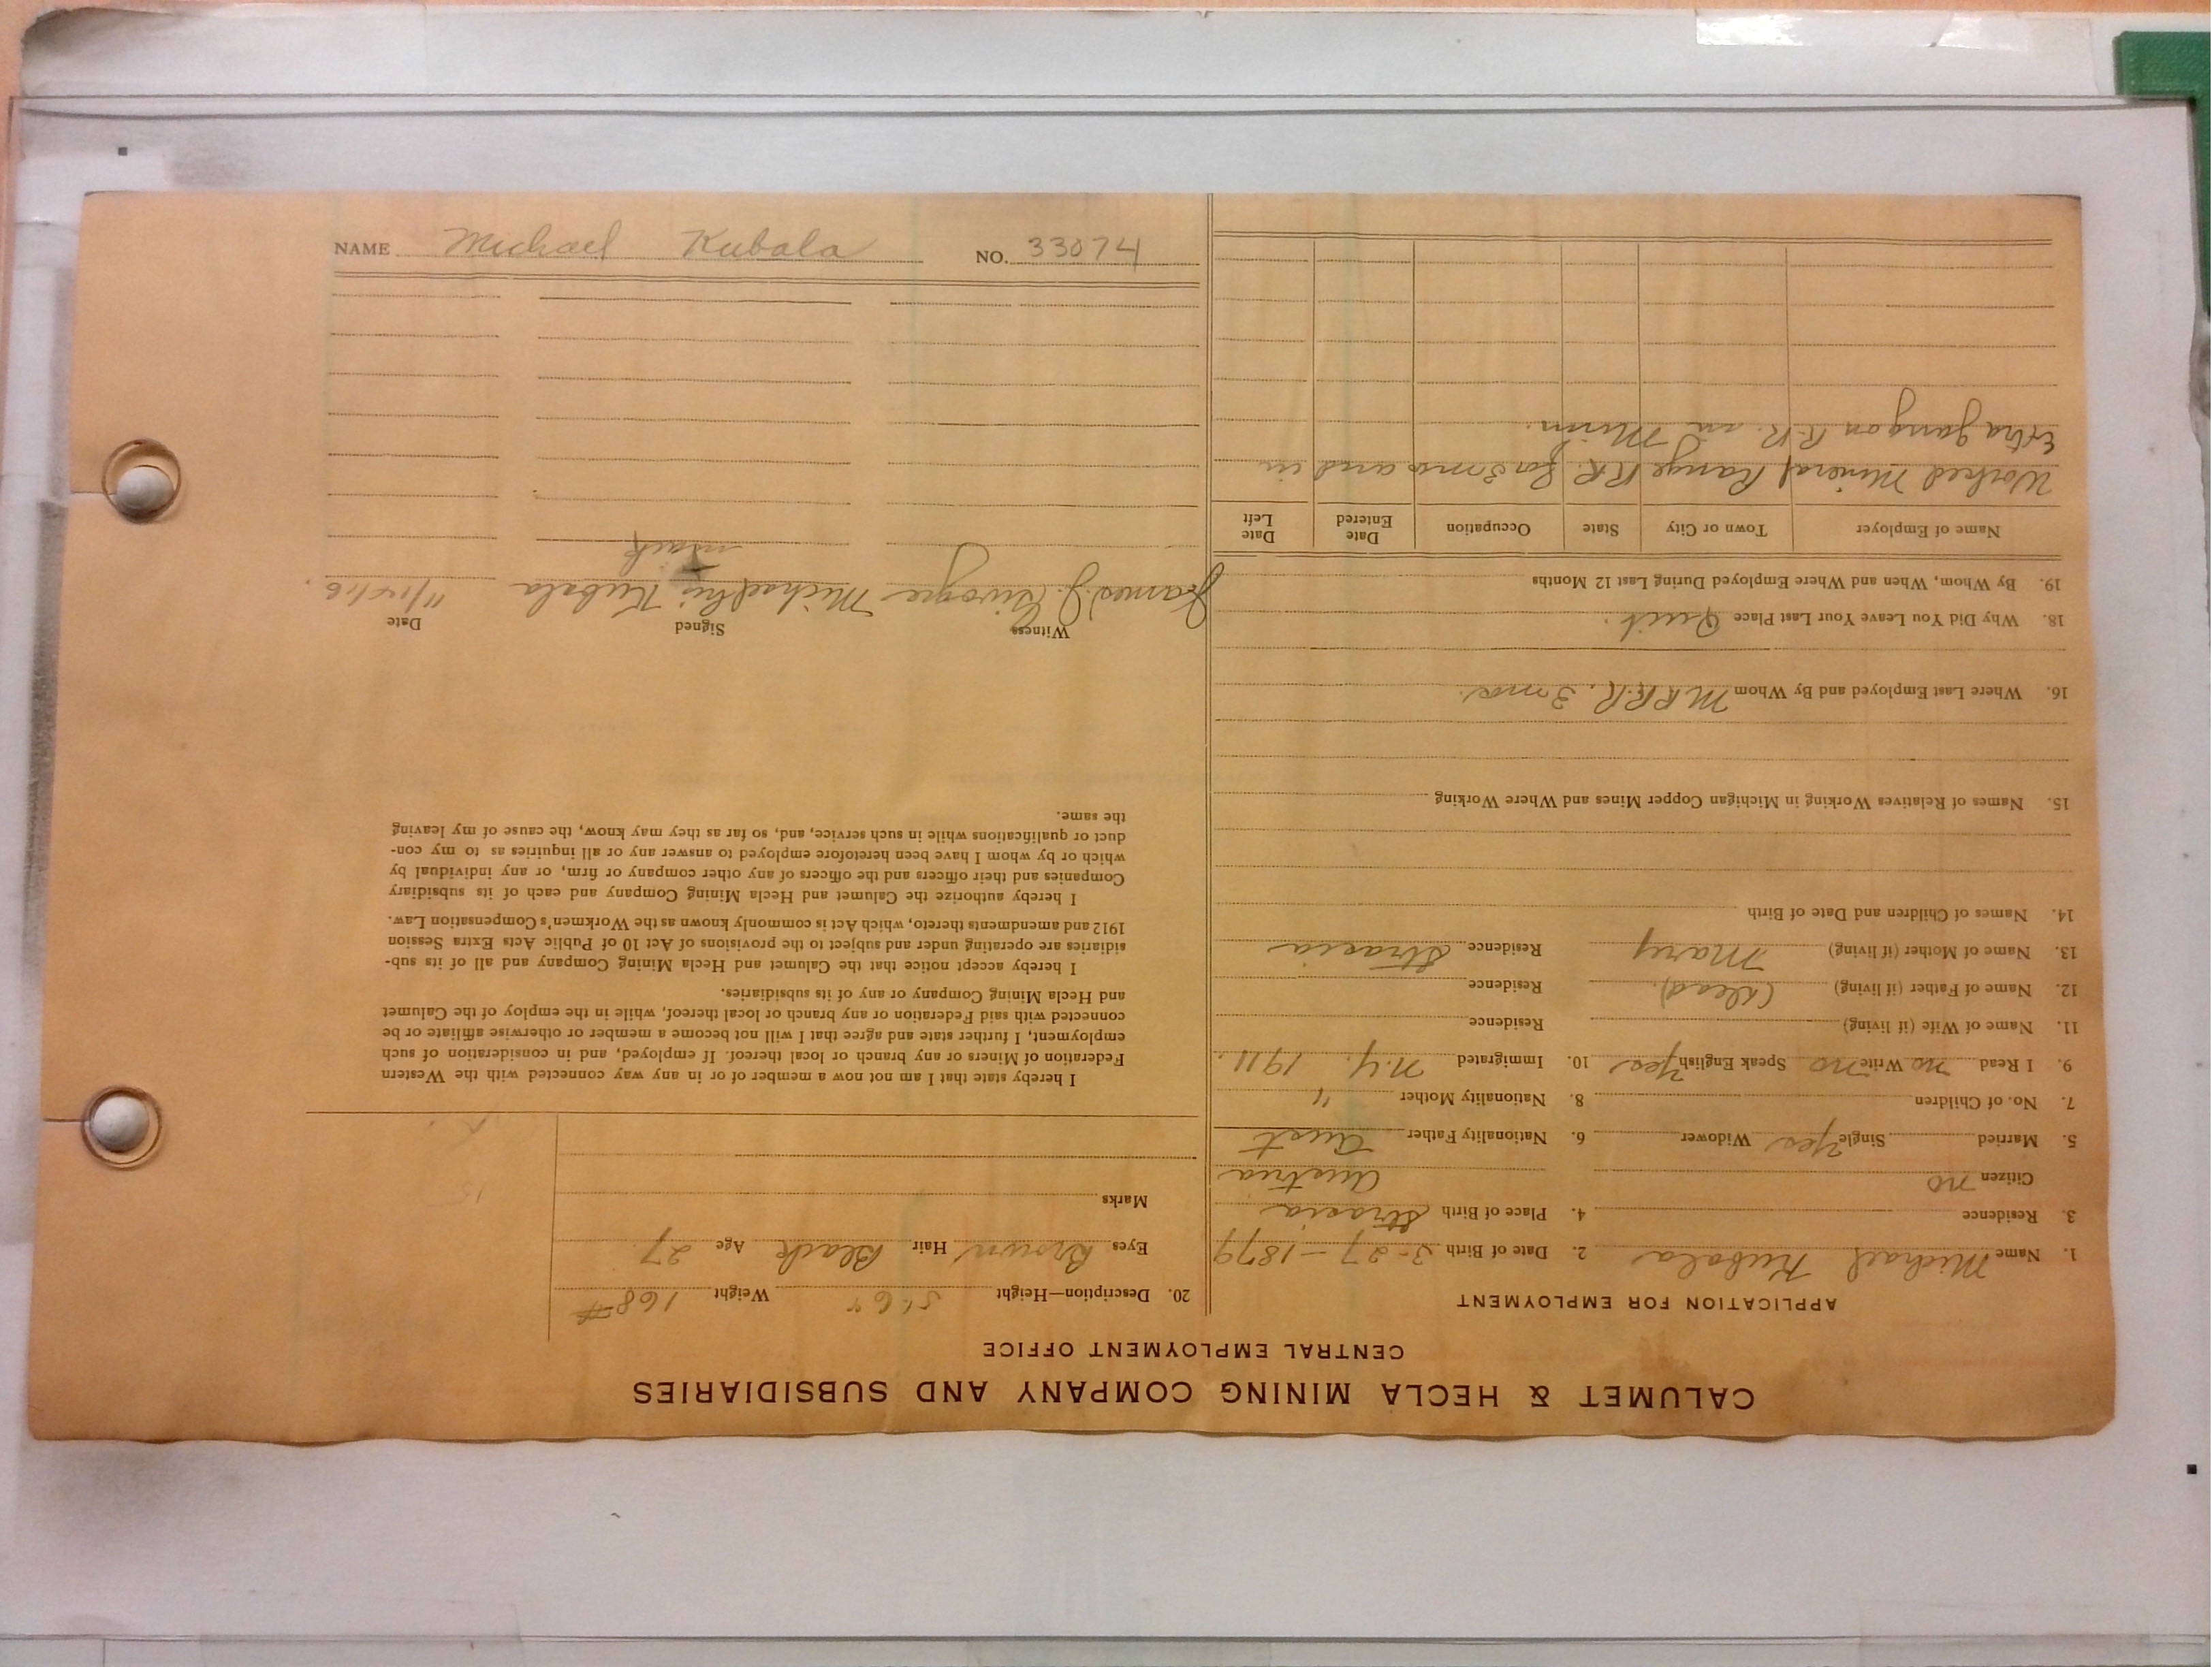 CALUMET & HECLA MINING COMPANY AND SUBSIDIARIES
CENTRAL EMPLOYMENT OFFICE
APPLICATION FOR EMPLOYMENT
1. Name Michael Kubala 2. Date of Birth 3-27-1879
3. Residence 4. Place of Birth
Citizen no Austria
5. Married Single Yes Widower 6. Nationality Father Aust
7. No. of Children 8. Nationality Mother "
9. I Read no Write no Speak English Yes 10. Immigrated N.Y. 1911.
11. Name of Wife (if living) Residence
12. Name of Father (if living) (dead) Residence
13. Name of Mother (if living) Mary Residence
14. Names of Children and Date of Birth
15. Names of Relatives Working in Michigan Copper Mines and Where Working
16. Where Last Employed and By Whom M.R.R.R. 3 mos.
18. Why Did You Leave Your Last Place Quit.
19. By Whom, When and Where Employed During Last 12 Months
Name of Employer Town or City State Occupation Date Entered Date Left
Worked Mineral Range R.R. for 3 mo and in
Extra gang on R.R. in Minn.
20. Description—Height 5' 6" Weight 168#
Eyes Brown Hair Black Age 27
Marks
I hereby state that I am not now a member of or in any way connected with the Western
Federation of Miners or any branch or local thereof. If employed, and in consideration of such
employment, I further state and agree that I will not become a member or otherwise affiliate or be
connected with said Federation or any branch or local thereof, while in the employ of the Calumet
and Hecla Mining Company or any of its subsidiaries.
I hereby accept notice that the Calumet and Hecla Mining Company and all of its sub-
sidiaries are operating under and subject to the provisions of Act 10 of Public Acts Extra Session
1912 and amendments thereto, which Act is commonly known as the Workmen's Compensation Law.
I hereby authorize the Calumet and Hecla Mining Company and each of its subsidiary
Companies and their officers and the officers of any other company or firm, or any individual by
which or by whom I have been heretofore employed to answer any or all inquiries as to my con-
duct or qualifications while in such service, and, so far as they may know, the cause of my leaving
the same.
Witness Signed Date
James J. Michael his Kubala
mark
NAME Michael Kubala NO. 33074